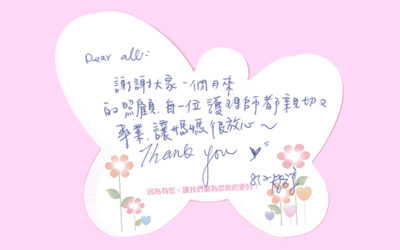 Dear all:
謝謝大家一個月來
的照顧,每一位護理師都親切又
專業,讓媽媽很放心~
Thank you
812
因為有您,讓我們要為您做的更好